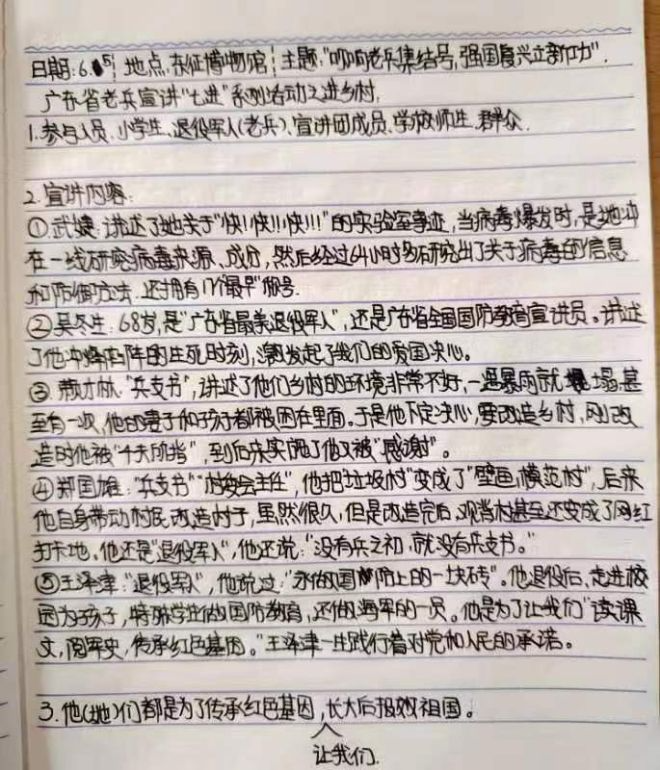 日期:6.5 地点:东征博物馆 主题:"吹响老兵集结号,强国复兴立新功".
广东省老兵宣讲"七进"系列活动之进乡村.
1.参与人员.小学生、退役军人(老兵)、宣讲团成员、学校师生.群众.
2.宣讲内容:
①武婕:讲述了她关于"快!快!!快!!!"的实验室事迹,当病毒爆发时,是她冲
在一线研究病毒来源、成分,然后经过64小时多研究出了关于病毒的信息
和防御方法.还拥有1个"最早"称号.
②吴冬生:68岁,是"广东省最美退役军人",还是广东省全国国防教育宣讲员。讲述
了他冲锋陷阵的生死时刻,激发起了我们的爱国决心。
③ "兵支书",讲述了他们乡村的环境非常不好,一遇暴雨就塌.甚
至有一次,他的妻子和孩子都被困在里面。于是他下定决心,要改造乡村,刚改
造时他被"千夫所指",到后来实现了他又被"感谢"。
④郑国雄:"兵支书""村委会主任",他把"垃圾村"变成了"壁画模范村",后来
他自身带动村民改造村子,虽然很久,但是改造完后,观背村甚至还变成了网红
打卡地。他还是"退役军人",他还说:"没有兵之初,就没有兵支书。"
⑤王泽津:"退役军人",他说过:"永做国防上的一块砖"。他退役后,走进校
园为孩子,特殊学生做国防教育,还做海军的一员。他是为了让我们"读课
文,阅军史,传承红色基因。"王泽津一生践行着对党和人民的承诺。
3.他(她)们都是为了传承红色基因,长大后报效祖国。
让我们.